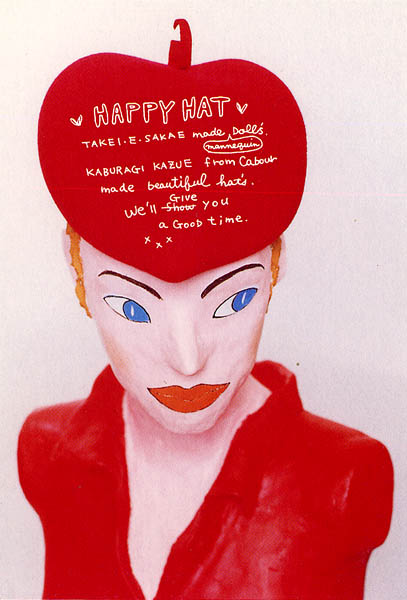 HAPPY HAT
TAKEI.E.SAKAE made Doll's.
mannequin
KABURAGI KAZUE from Cabour
made beautiful hat's.
GIVE
We'll Show you
a GOOD time.
x x x